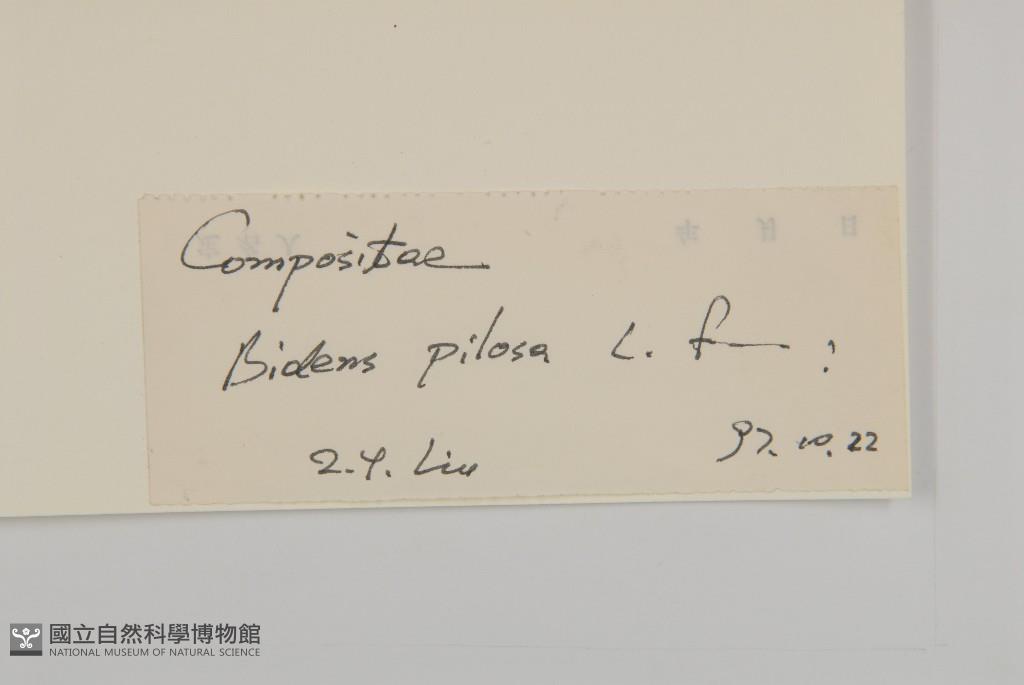 Compositae
Bidens pilosa L. f :
Z.Y. Liu 97.10.22
國立自然科學博物館
NATIONAL MUSEUM OF NATURAL SCIENCE